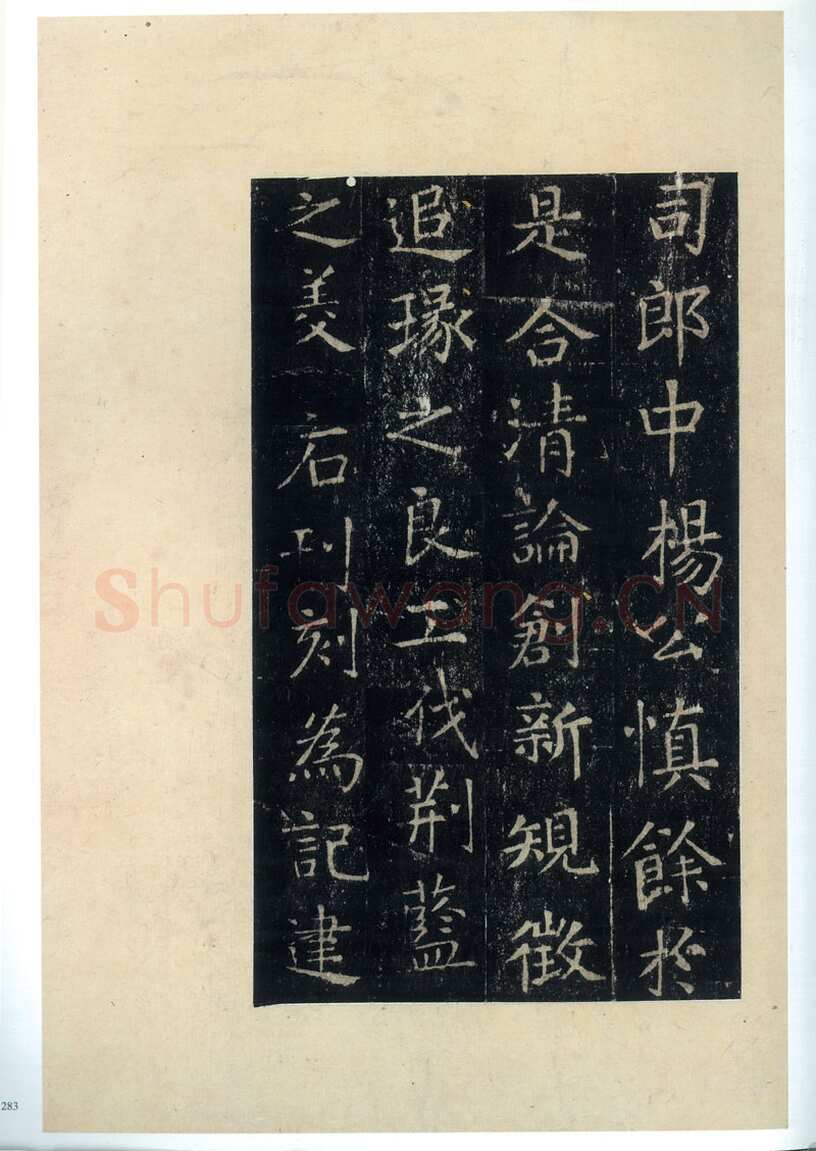 司郎中楊公慎餘於
是合清論創新規徵
追琢之良工伐荆藍
之美石刊刻為記建
Shufawang.CN
283